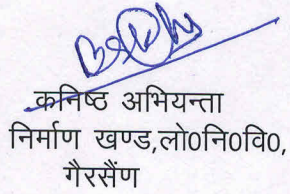 कनिष्ठ अभियन्ता
निर्माण खण्ड,लो0नि0वि0,
गैरसैंण